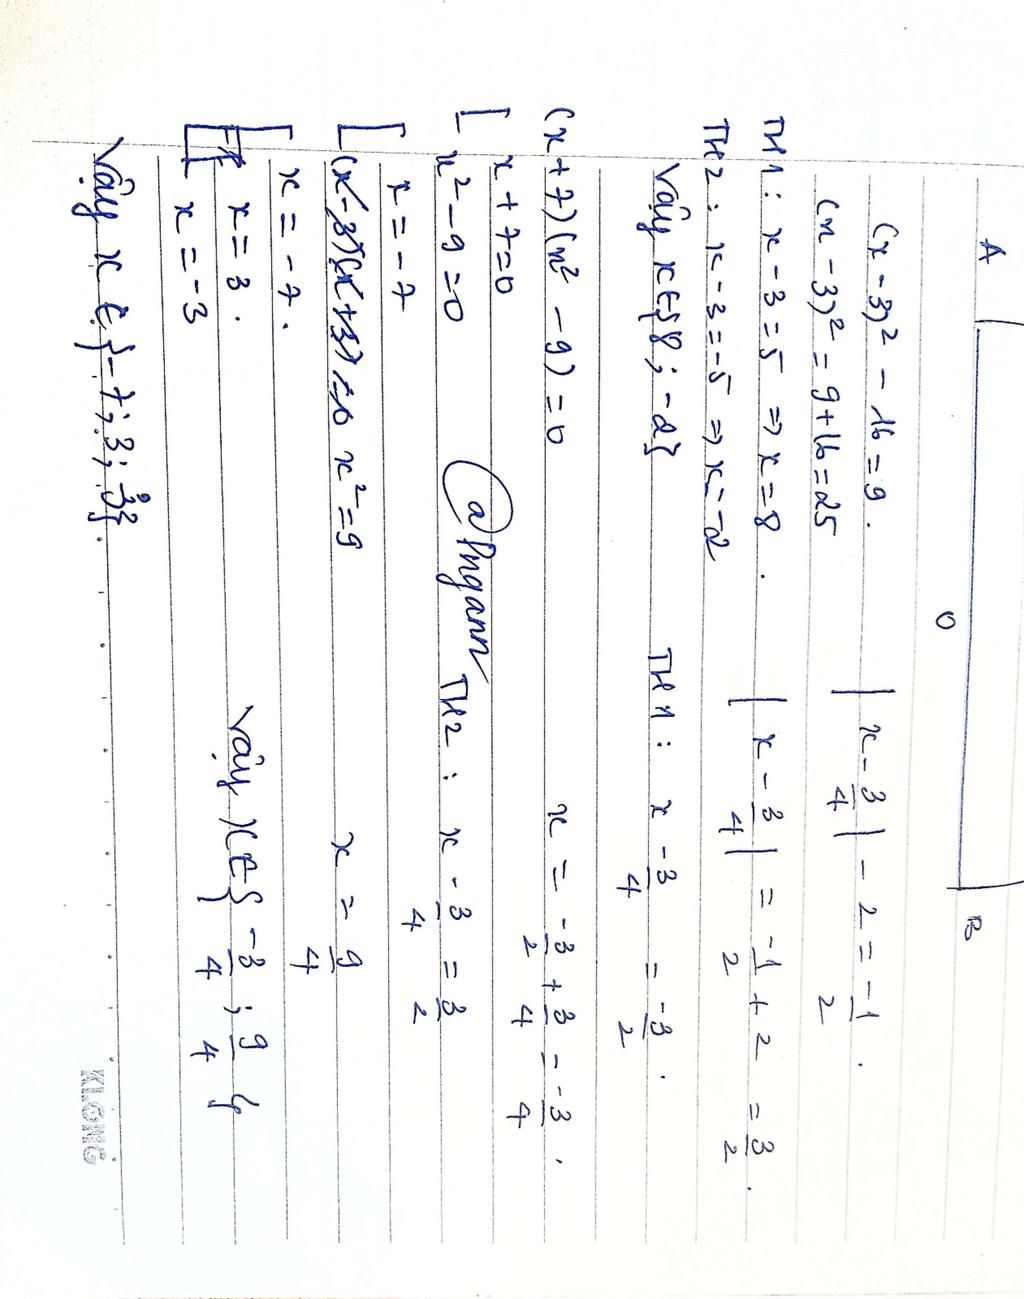 A
O
B
(x - 3)² - 16 = 9.
(x - 3)² = 9 + 16 = 25
TH1: x - 3 = 5 => x = 8.
TH2: x - 3 = -5 => x = -2
Vậy x ∈ {8; -2}
(x + 7)(x² - 9) = 0
[ x + 7 = 0
x² - 9 = 0
[ x = -7
x² = 9
[ x = -7.
[ x = 3.
x = -3
Vậy x ∈ {-7; 3; -3}.
@Pngann
|x - 3/4| - 2 = -1/2.
|x - 3/4| = -1/2 + 2 = 3/2.
TH1: x - 3/4 = -3/2.
x = -3/2 + 3/4 = -3/4.
TH2: x - 3/4 = 3/2
x = 9/4
Vậy x ∈ {-3/4; 9/4}
KLONG